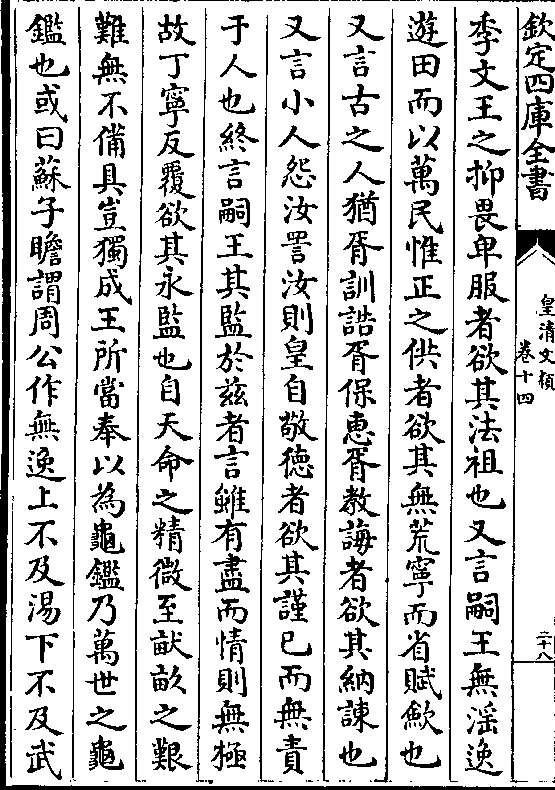 欽定四庫全書
皇清文穎
卷十四
二十八
季文王之抑畏卑服者欲其法祖也又言嗣王無淫逸
遊田而以萬民惟正之供者欲其無荒寧而省賦歛也
又言古之人猶胥訓誥胥保惠胥教誨者欲其納諫也
又言小人怨汝詈汝則皇自敬德者欲其謹已而無責
于人也終言嗣王其監於兹者言雖有盡而情則無極
故丁寧反覆欲其永監也自天命之精微至畎畝之艱
難無不備具豈獨成王所當奉以為龜鑑乃萬世之龜
鑑也或曰蘇子瞻謂周公作無逸上不及湯下不及武